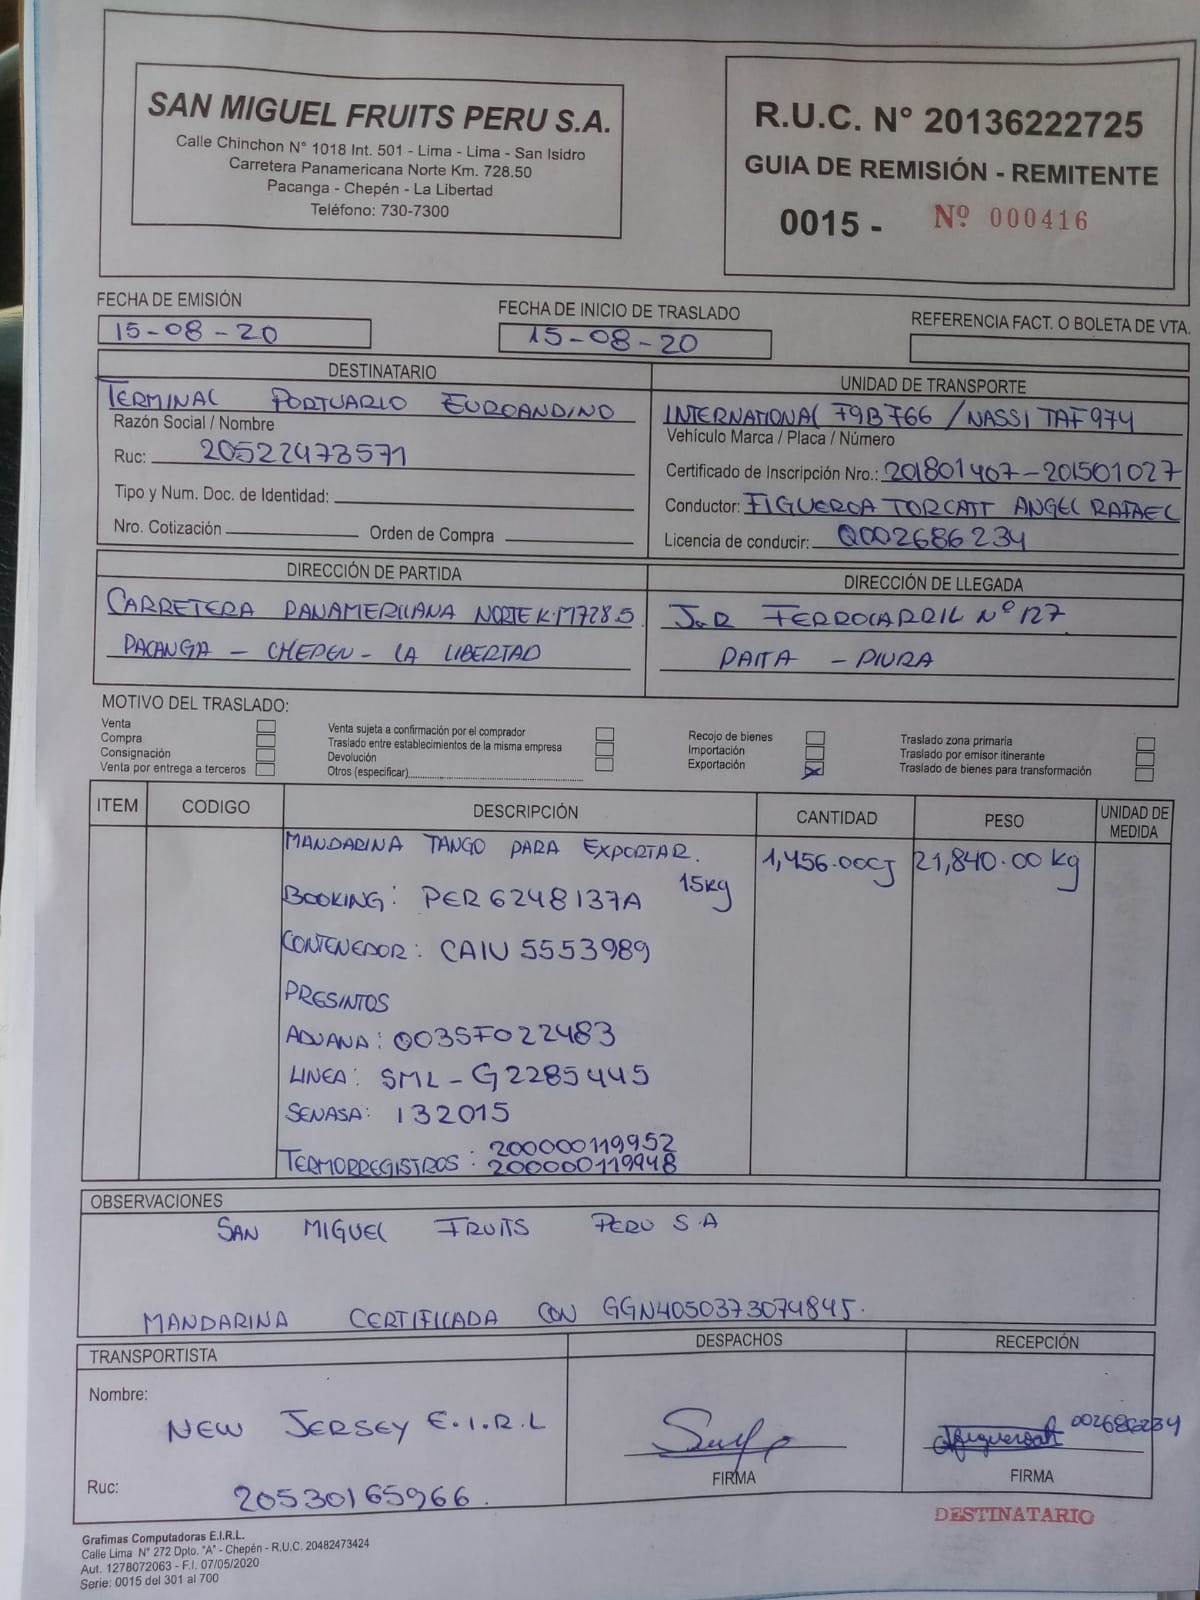 SAN MIGUEL FRUITS PERU S.A.
Calle Chinchon N° 1018 Int. 501 - Lima - Lima - San Isidro
Carretera Panamericana Norte Km. 728.50
Pacanga - Chepén - La Libertad
Teléfono: 730-7300
R.U.C. N° 20136222725
GUIA DE REMISIÓN - REMITENTE
0015 - Nº 000416
FECHA DE EMISIÓN
15-08-20
FECHA DE INICIO DE TRASLADO
15-08-20
REFERENCIA FACT. O BOLETA DE VTA.
DESTINATARIO
TERMINAL PORTUARIO EUROANDINO
Razón Social / Nombre
Ruc: 20522473571
Tipo y Num. Doc. de Identidad:
Nro. Cotización Orden de Compra
UNIDAD DE TRANSPORTE
INTERNATIONAL F9B766 / NASSI TAF974
Vehículo Marca / Placa / Número
Certificado de Inscripción Nro.: 201801407-201501027
Conductor: FIGUEROA TORCATT ANGEL RAFAEL
Licencia de conducir: Q002686234
DIRECCIÓN DE PARTIDA
CARRETERA PANAMERICANA NORTE K.M728.5
PACANGA - CHEPEN - LA LIBERTAD
DIRECCIÓN DE LLEGADA
J&R FERROCARRIL N° 127
PAITA - PIURA
MOTIVO DEL TRASLADO:
Venta
Compra
Consignación
Venta por entrega a terceros
Venta sujeta a confirmación por el comprador
Traslado entre establecimientos de la misma empresa
Devolución
Otros (especificar)
Recojo de bienes
Importación
Exportación X
Traslado zona primaria
Traslado por emisor itinerante
Traslado de bienes para transformación
ITEM CODIGO DESCRIPCIÓN CANTIDAD PESO UNIDAD DE MEDIDA
MANDARINA TANGO PARA EXPORTAR. 1,456.00CJ 21,840.00 kg
15kg
BOOKING: PER6248137A
CONTENEDOR: CAIU 5553989
PRESINTOS
ADUANA: 003SF022483
LINEA: SML-G2285445
SENASA: 132015
TERMORREGISTROS: 200000119952
200000119948
OBSERVACIONES
SAN MIGUEL FRUITS PERU S.A
MANDARINA CERTIFICADA CON GGN4050373074845.
TRANSPORTISTA
Nombre:
NEW JERSEY E.I.R.L
Ruc: 20530165966.
DESPACHOS
FIRMA
RECEPCIÓN
002686234
FIRMA
DESTINATARIO
Grafimas Computadoras E.I.R.L.
Calle Lima N° 272 Dpto. "A" - Chepén - R.U.C. 20482473424
Aut. 1278072063 - F.I. 07/05/2020
Serie: 0015 del 301 al 700